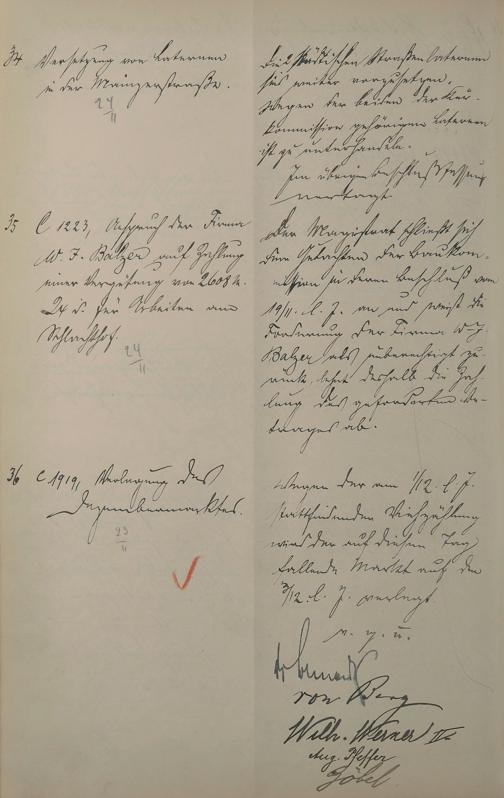 34 Versetzung von Laternen
in der Mainzerstraße.
24
11
Die 2 städtischen Straßenlaternen
sind weiter vorzusetzen.
Wegen der beiden der Kur-
kommission gehörigen Laternen
ist zu unterhandeln.
Im übrigen Beschlußfassung
vertagt.
35 C 1223, Anspruch der Firma
W. F. Balzer auf Zahlung
einer Vergütung von 2608 M.
24 d. für Arbeiten am
Schlachthof.
24
11
Der Magistrat schließt sich
dem Gutachten der Baukom-
mission in deren Beschluß vom
19/11. l. J. an und weist die
Forderung der Firma W. F.
Balzer als unberechtigt zu-
rück, lehnt deshalb die Zah-
lung des geforderten Be-
trages ab.
36 C 1919, Verlegung des
Dezembermarktes.
23
11
Wegen der am 1/12. l. J.
stattfindenden Viehzählung
wird der auf diesen Tag
fallende Markt auf den
3/12. l. J. verlegt.
v. g. u.
von Berg
Wilh. Werner IV
Aug. Pfeffer
Göbel